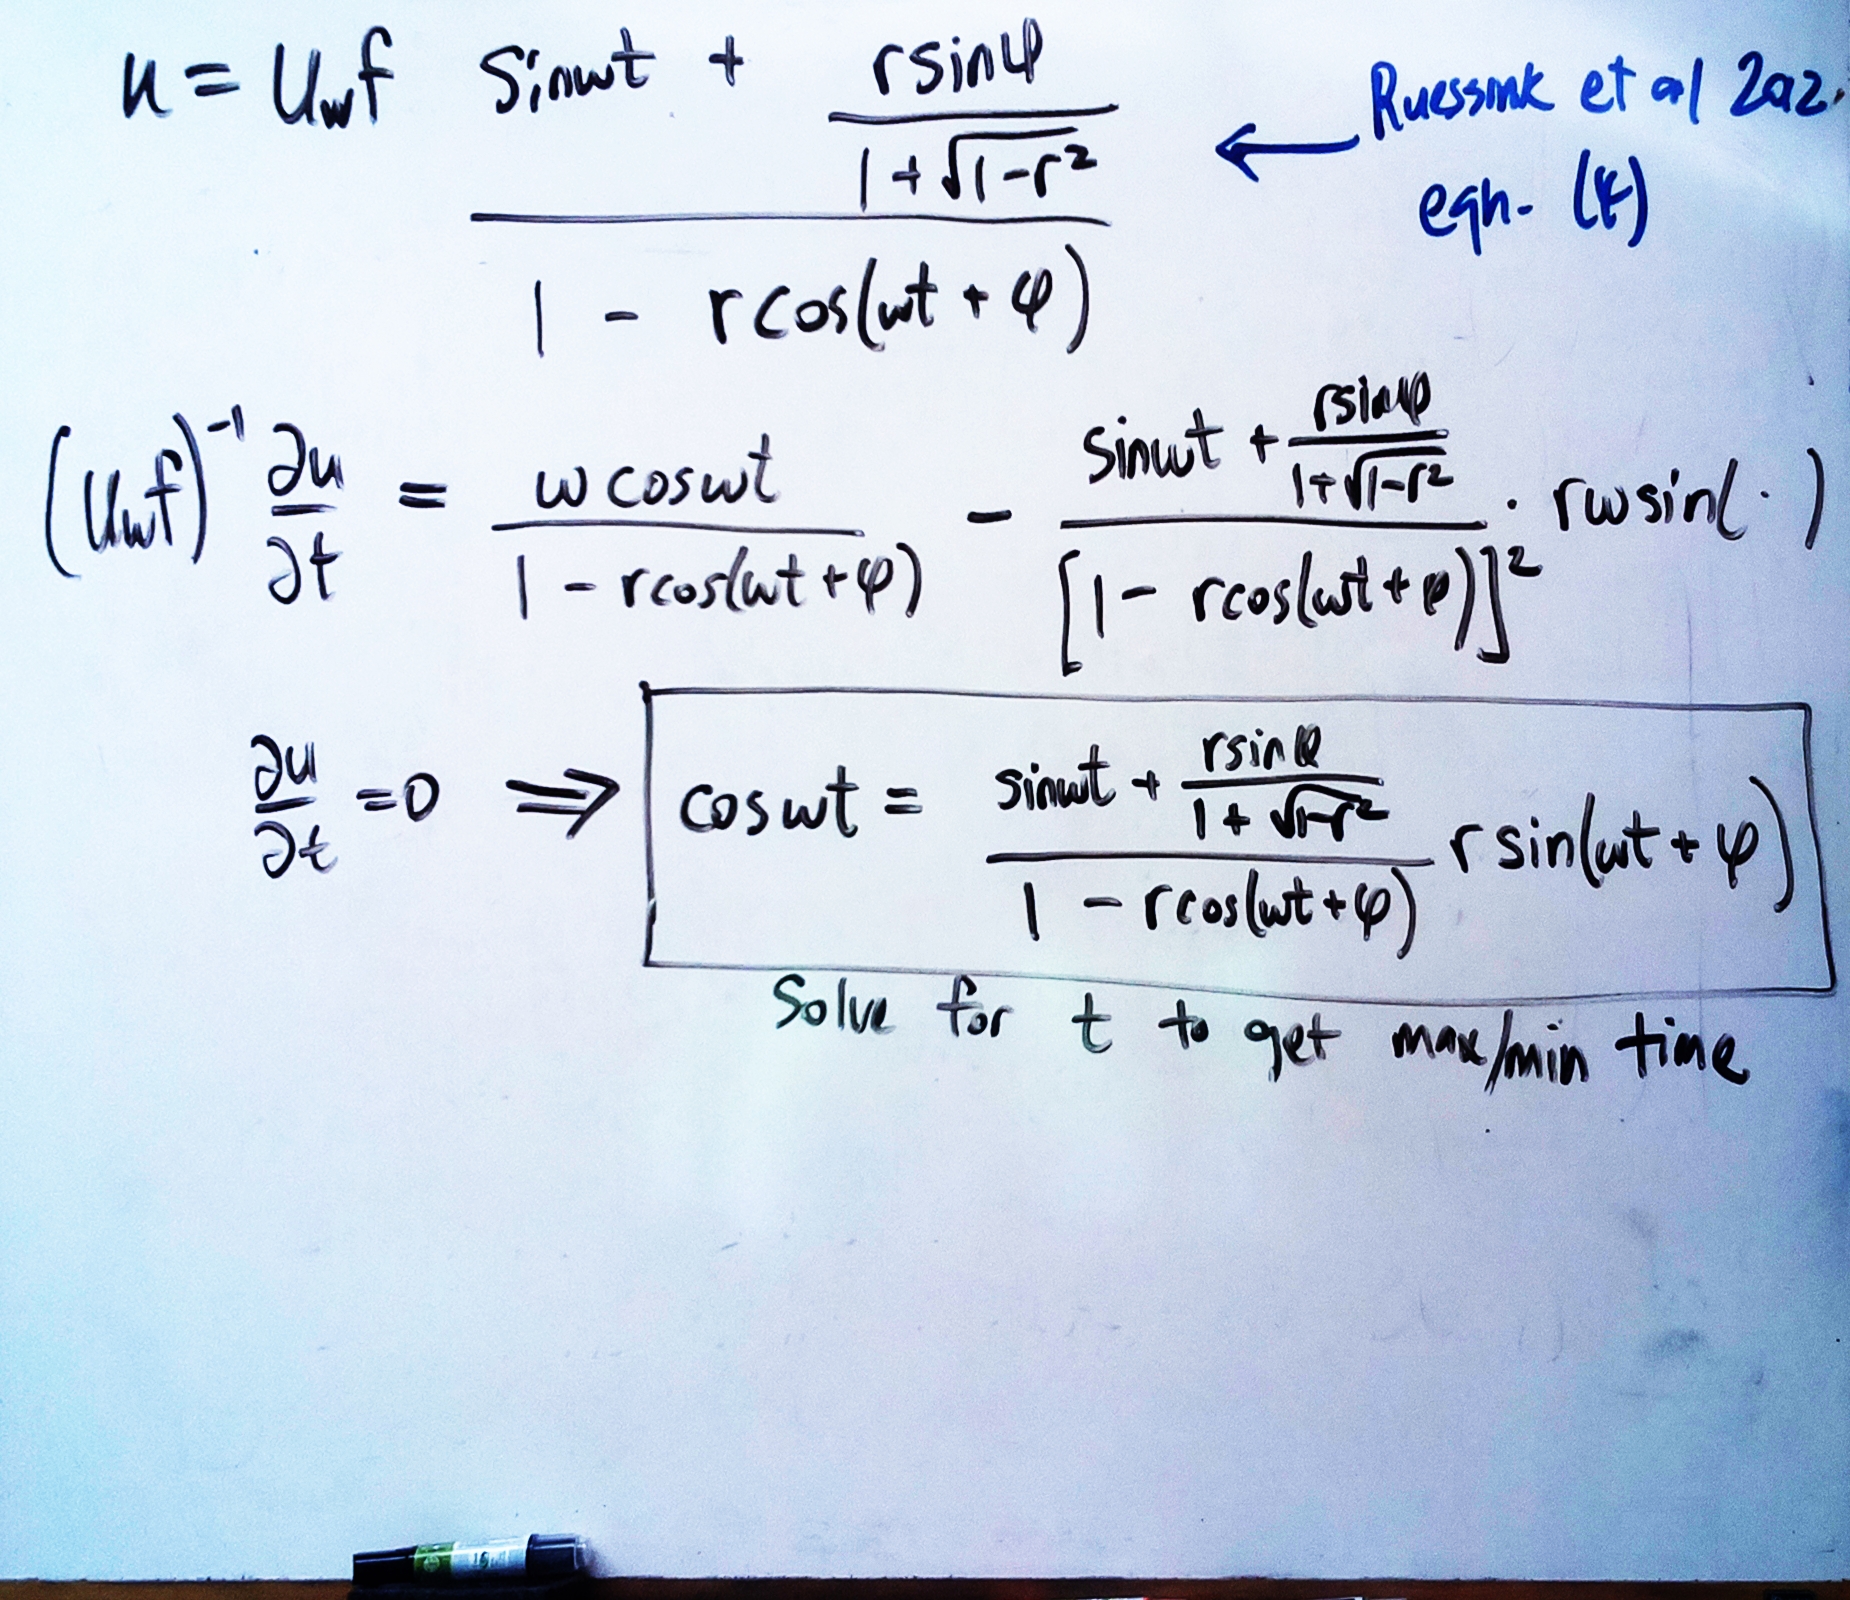 u = U_w f (sin ωt + (r sin φ)/(1 + √(1-r²)))/(1 - r cos(ωt + φ))
← Ruessink et al 2012. eqn. (4)
(U_w f)⁻¹ ∂u/∂t = (ω cos ωt)/(1 - r cos(ωt + φ)) - (sin ωt + (r sin φ)/(1+√(1-r²)))/[1 - r cos(ωt + φ)]² · rω sin(·)
∂u/∂t = 0 ⇒ cos ωt = (sin ωt + (r sin φ)/(1 + √(1-r²)))/(1 - r cos(ωt + φ)) r sin(ωt + φ)
Solve for t to get max/min time